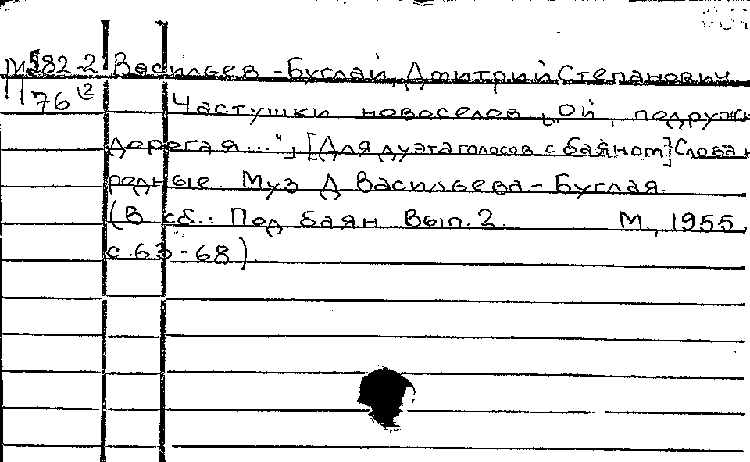 М582-2 Васильев-Буглай, Дмитрий Степанович
76 Частушки новоселов „Ой, подружк
дорогая...", [Для дуэта голосов с баяном] Слова н
родные. Муз Д Васильева-Буглая.
(В сб.: Под баян Вып. 2. М., 1955,
с. 63-68).